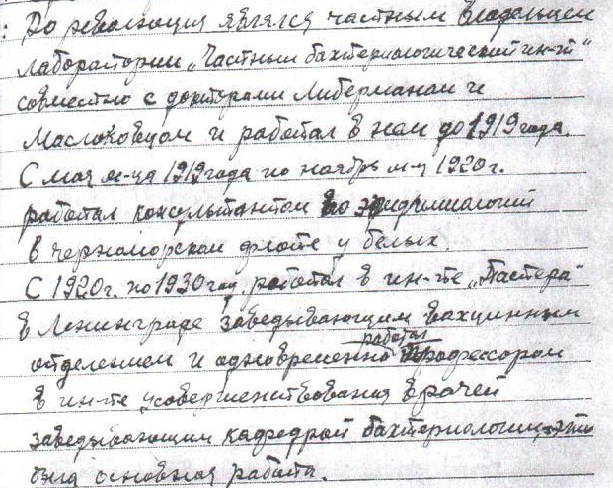 : До революции являлся частным владельцем
лаборатории „Частный бактериологический ин-т“
совместно с докторами Либерманом и
Маслаковцом и работал в нем до 1919 года.
С мая м-ца 1919 года по ноябрь м-ц 1920 г.
работал консультантом по эпидемиологии
в черноморском флоте у белых
С 1920 г. по 1930 год работал в ин-те „Пастера“
в Ленинграде заведывающим вакцинным
отделением и одновременно работал профессором
в ин-те усовершенствования врачей
заведывающим кафедрой бактериологии, это
была основная работа.